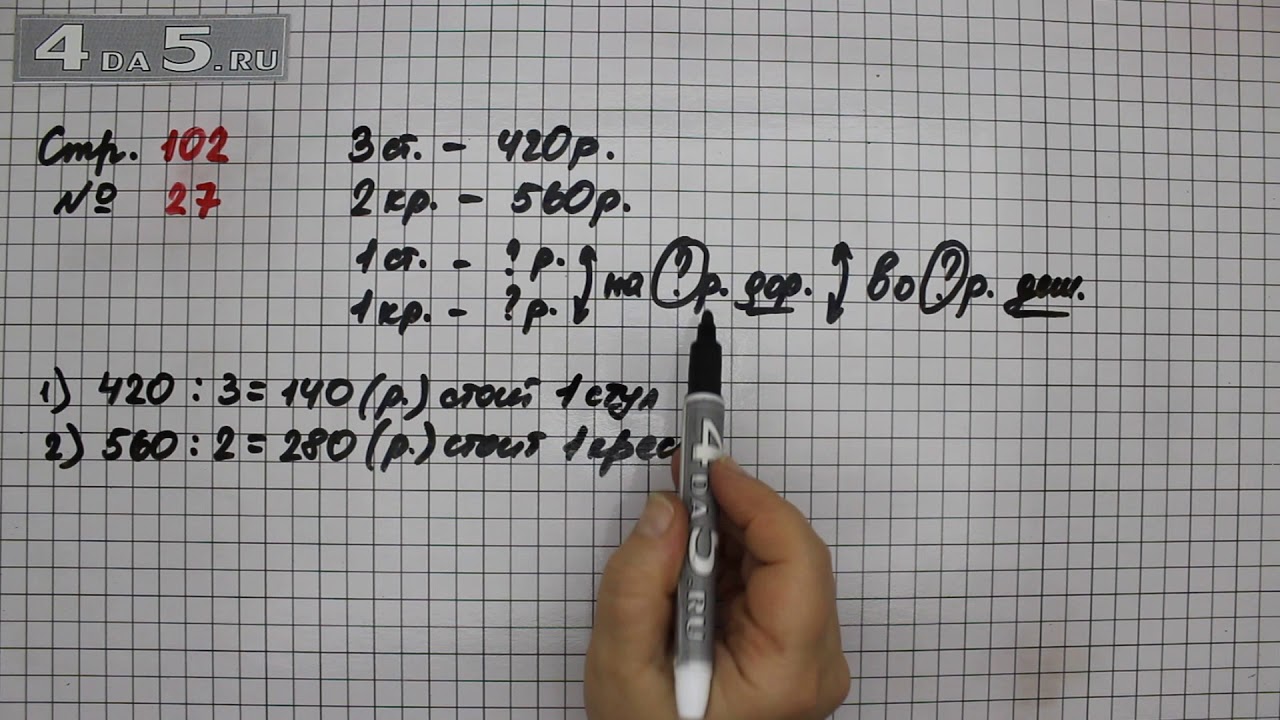 4DA5.RU
Стр. 102
№ 27
3 ст. - 420 р.
2 кр. - 560 р.
1 ст. - ? р. на ? р. дор. во ? р. деш.
1 кр. - ? р.
1) 420 : 3 = 140 (р.) стоит 1 стул
2) 560 : 2 = 280 (р.) стоит 1 крес
4DA5.RU